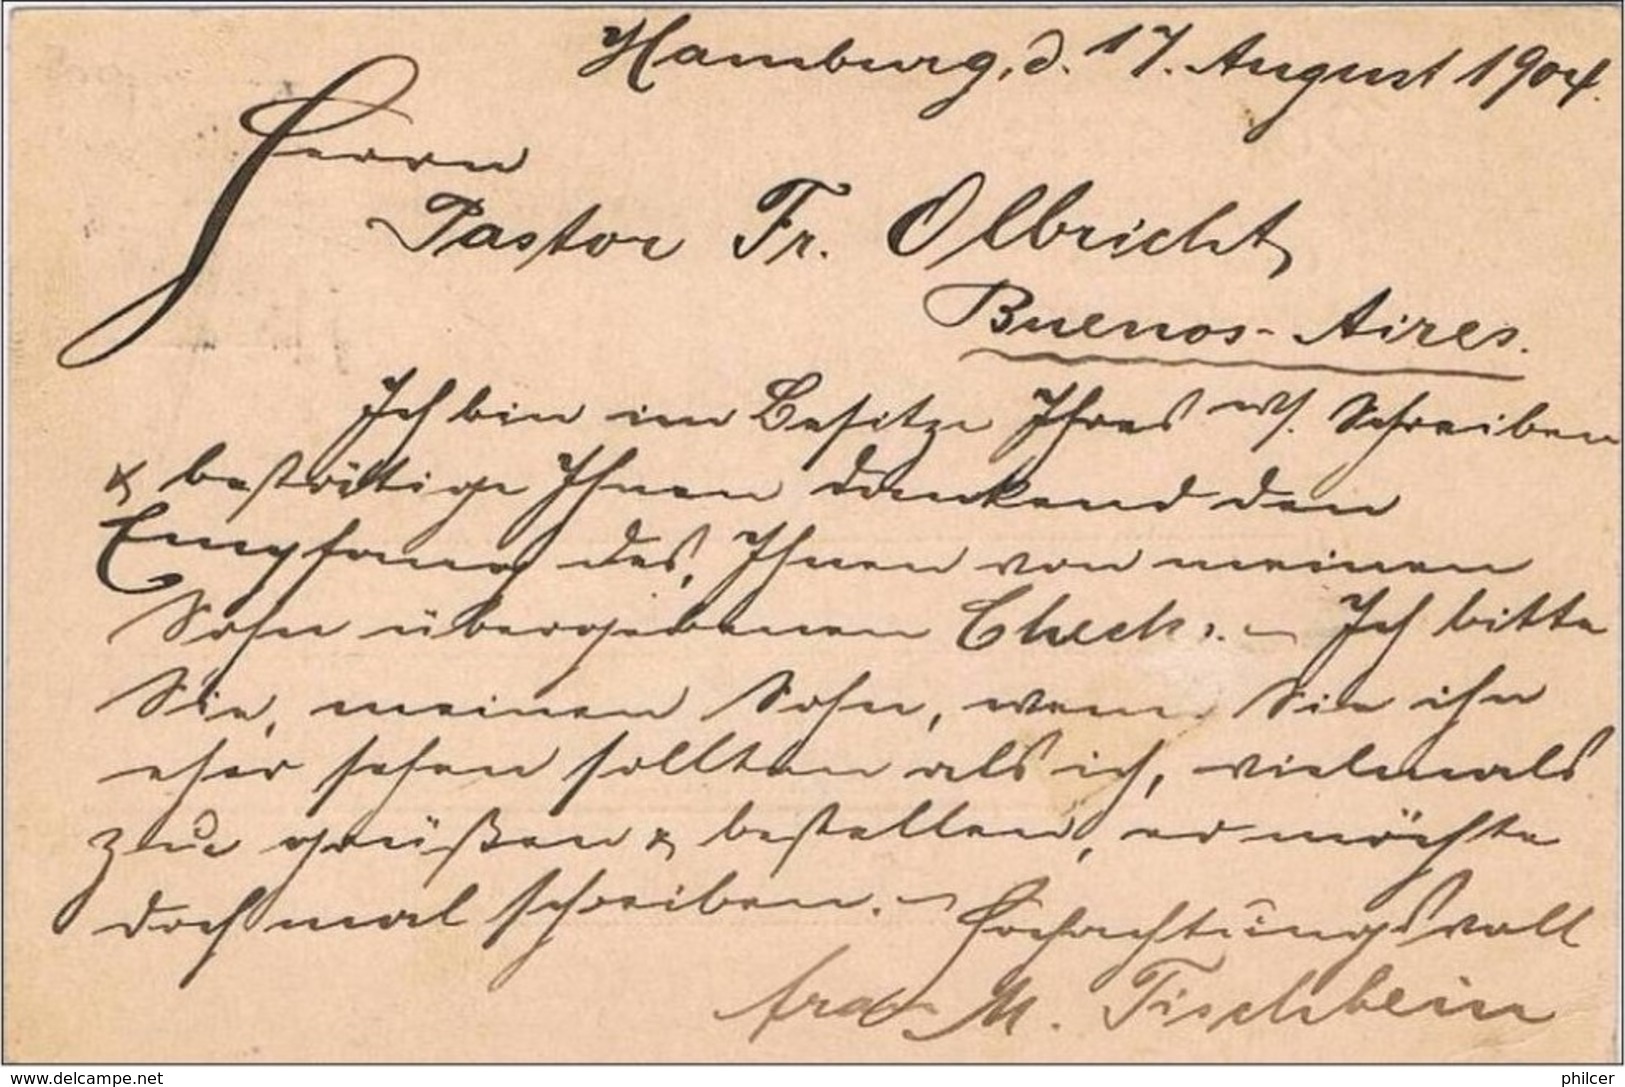 Hamburg, d. 17. August 1904.
Herrn
Pastor Fr. Olbricht
Buenos-Aires.
Ich bin im Besitze Ihres w. Schreiben
& bestätige Ihnen dankend den
Empfang des, Ihnen von meinen
Sohn übergebenen Check's. – Ich bitte
Sie, meinen Sohn, wenn Sie ihn
eher sehen sollten als ich, vielmals
zu grüßen & bestellen, er möchte
doch mal schreiben. – Hochachtungsvoll
Frau M. Tischbein
www.delcampe.net
philcer